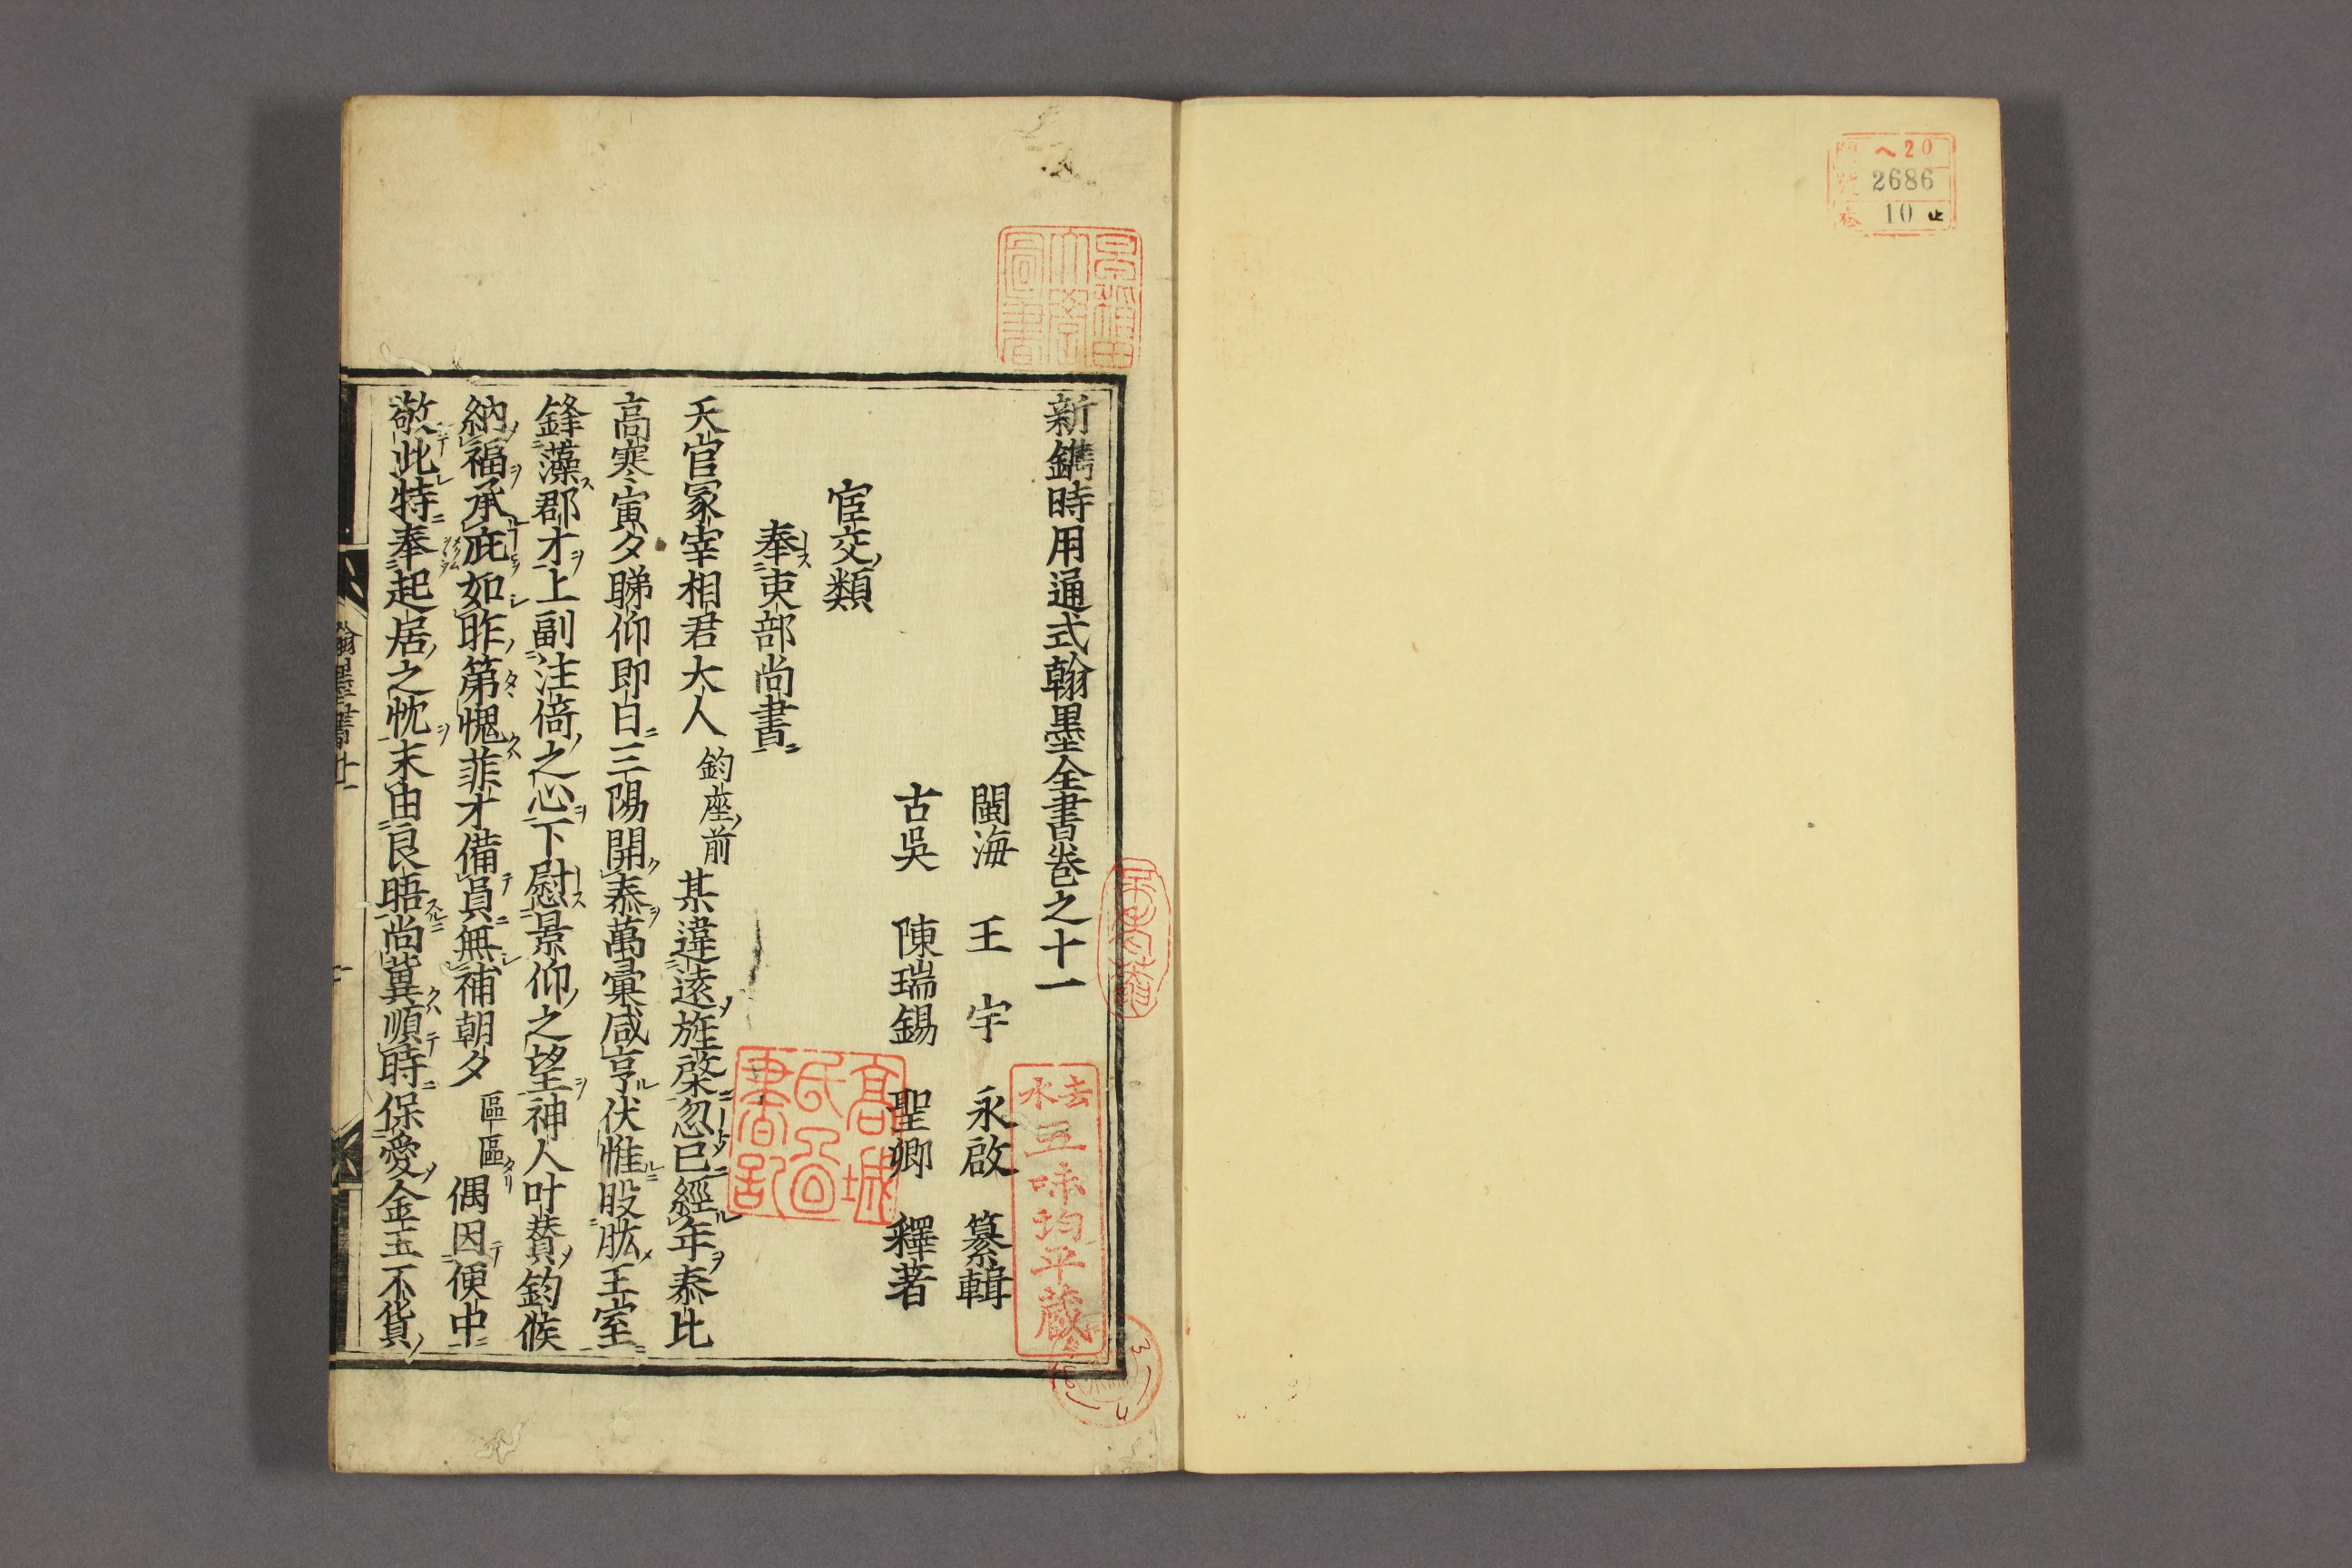 ヘ20
2686
10 止
新鐫時用通式翰墨全書卷之十一
閩海 王宇 永啟 纂輯
古吳 陳瑞錫 聖卿 釋著
宦交類
奉吏部尚書
天官冢宰相君大人鈞座前某違遠旌棨忽已經年泰比
高寒寅夕睇仰即日三陽開泰萬彙咸亨伏惟股肱王室
鋒藻郡才上副注倚之心下慰景仰之望神人叶賛鈞候
納福承庇如昨第愧菲才備員無補朝夕區區偶因便中
敬此特奉起居之忱末由良晤尚兾順時保愛金玉不貲
翰墨書
早稻田大學圖書
去水五味均平蔵
高城氏圖書記